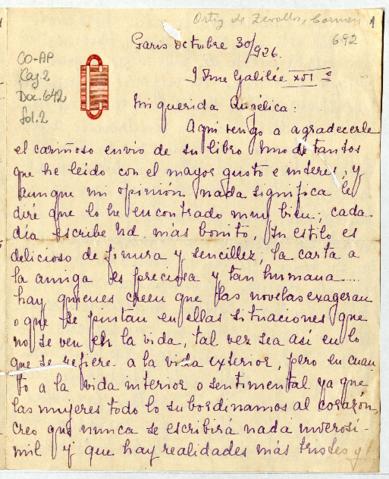 Ortiz de Zevallos, Carmen 1
692
CO-AP
Caj 2
Doc. 642
fol. 2
Paris octubre 30/926.
9 Rue Galilée XVI e
Mi querida Angélica:
Aqui vengo a agradecerle
el cariñoso envio de su libro Uno de tantos
que he leido con el mayor gusto e interés, y
aunque mi opinión nada significa le
diré que lo he encontrado muy bien; cada
dia escribe Ud. más bonito, su estilo es
delicioso de finura y sencillez, la carta a
la amiga es preciosa y tan humana....
hay quienes creen que las novelas exageran
o que se pintan en ellas situaciones que
no se ven en la vida, tal vez sea asi en lo
que se refiere a la vida exterior, pero en cuan
to a la vida interior o sentimental ya que
las mujeres todo lo subordinamos al corazón,
creo que nunca se escribirá nada inverosi-
mil y que hay realidades más tristes y